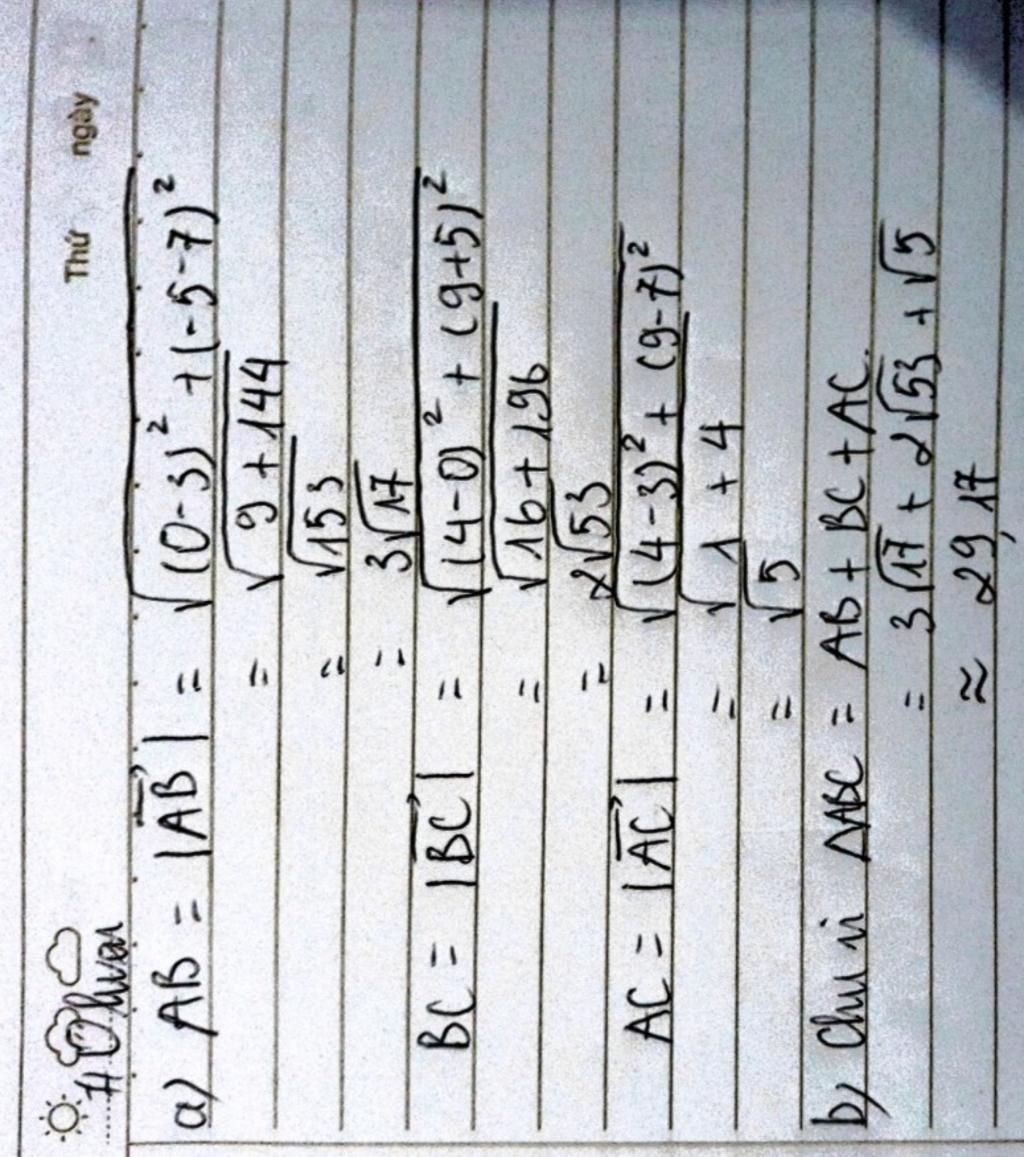 Thứ ngày
a) AB = |AB| = √(0-3)² + (-5-7)²
= √9 + 144
= √153
= 3√17
BC = |BC| = √(4-0)² + (9+5)²
= √16 + 196
= 2√53
AC = |AC| = √(4-3)² + (9-7)²
= √1 + 4
= √5
b) Chu vi ΔABC = AB + BC + AC.
= 3√17 + 2√53 + √5
≈ 29,17